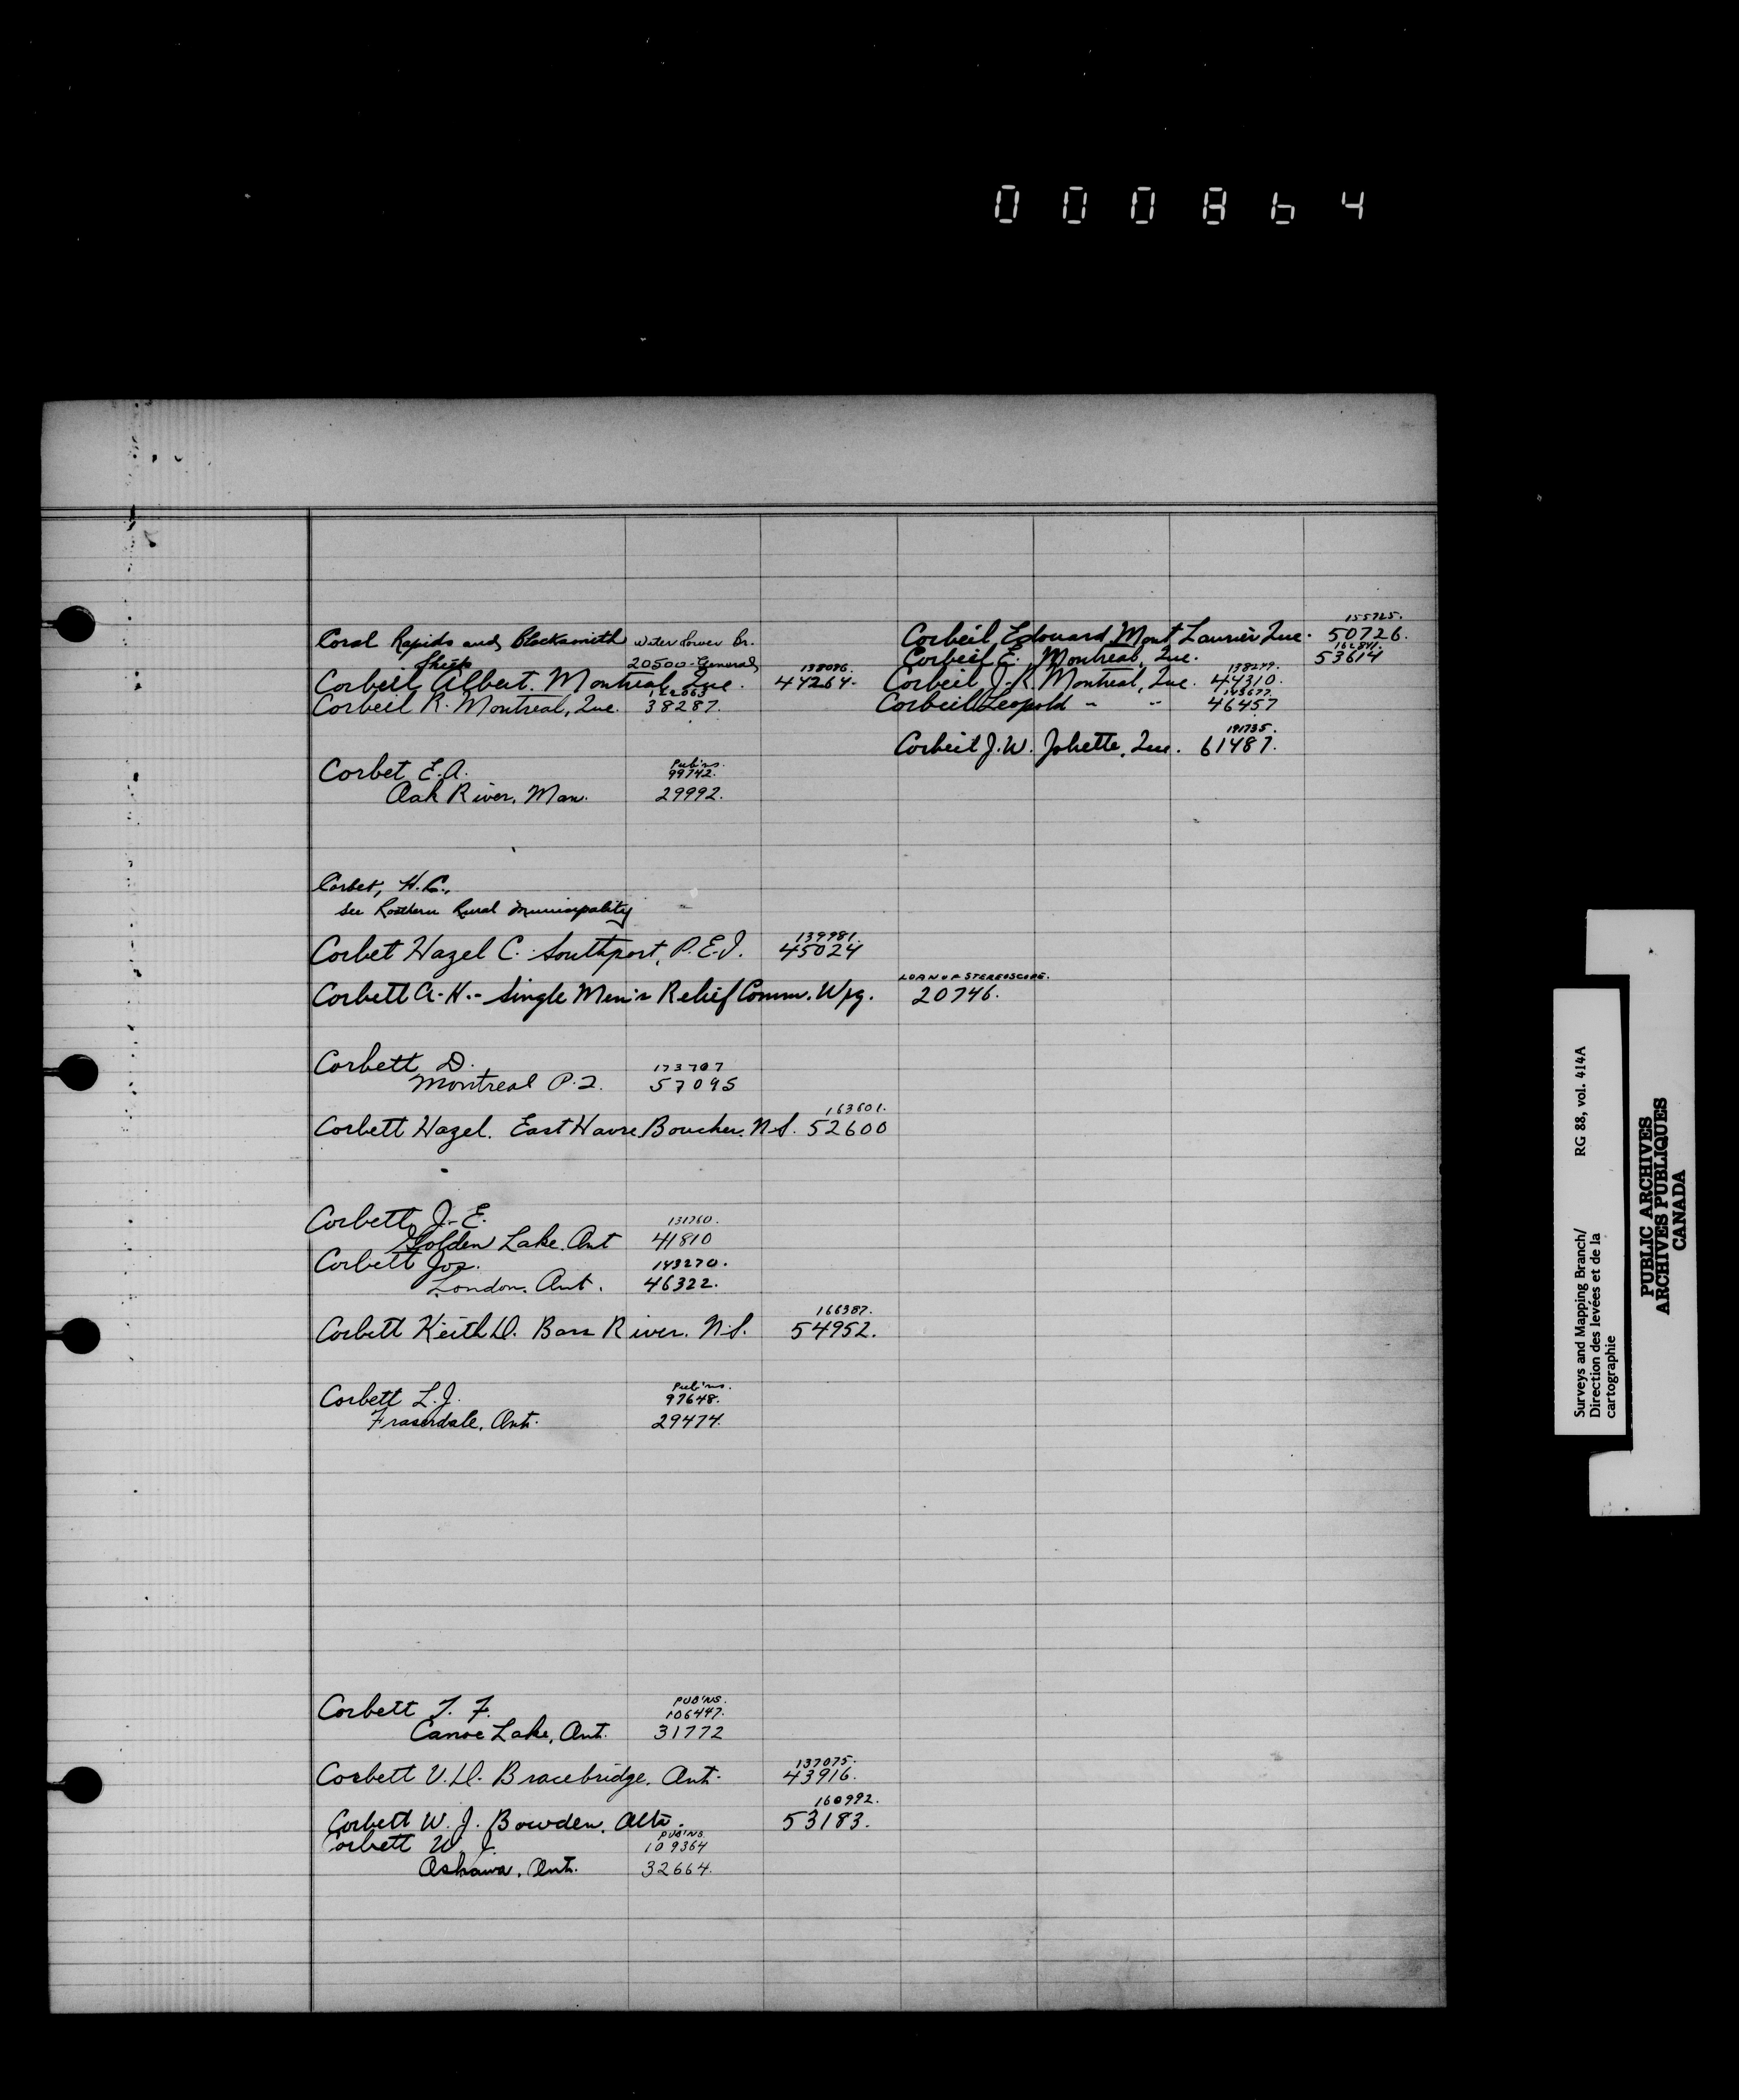 000864
Coral Rapids and Blacksmith Water Power Br.
20500-General
Corbeil Albert. Montreal, Que. 138086. 44264.
Corbeil R. Montreal, Que. 122063 38287.
Corbeil, Edouard, Mont Laurier Que. 155725. 50726.
Corbeil E. Montreal, Que. 162841. 53614
Corbeil J.R. Montreal, Que. 138249. 44310.
Corbeil Leopold " " 143677. 46457
Corbeil J.W. Joliette, Que. 191735. 61487.
Corbet E.A. Pub'ns. 99742.
Oak River, Man. 29992.
Corbet, H.C.,
See Rosthern Rural Municipality
Corbet Hazel C. Southport, P.E.I. 139981. 45024
Corbett A.H. - Single Men's Relief Comm. Wpg. LOAN OF STEREOSCOPE. 20746.
Corbett D. 173707
Montreal P.Q. 57095
Corbett Hazel. East Havre Boucher. N.S. 163601. 52600
Corbett J.E. 131760.
Golden Lake. Ont 41810
Corbett Jos. 143270.
London. Ont. 46322.
Corbett Keith D. Bass River. N.S. 166387. 54952.
Corbett L.J. Pub'ns. 97648.
Fraserdale, Ont. 29474.
Corbett T. F. PUB'NS. 106447.
Canoe Lake, Ont. 31772
Corbett V.D. Bracebridge. Ont. 137075. 43916.
Corbett W.J. Bowden. Alta. 160992. 53183.
Corbett W.J. PUB'NS 109364
Oshawa. Ont. 32664.
Surveys and Mapping Branch/ RG 88, vol. 414A
Direction des levées et de la
cartographie
PUBLIC ARCHIVES
ARCHIVES PUBLIQUES
CANADA